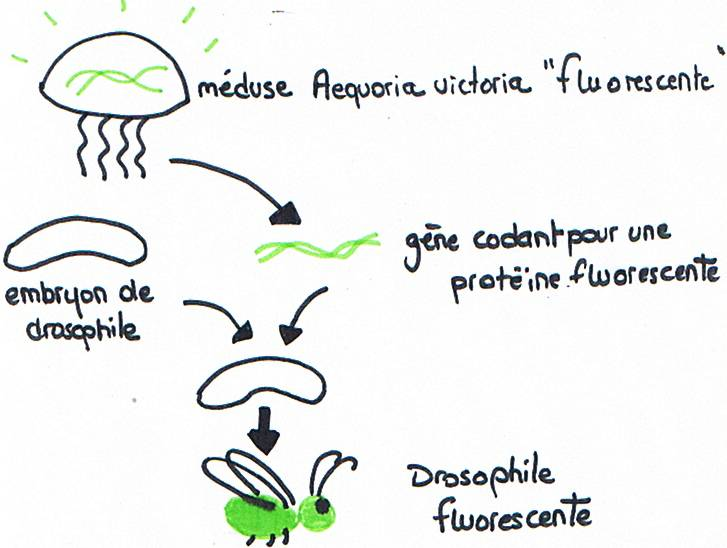 méduse Aequoria victoria "fluorescente"
gène codant pour une
protéine fluorescente
embryon de
drosophile
Drosophile
fluorescente